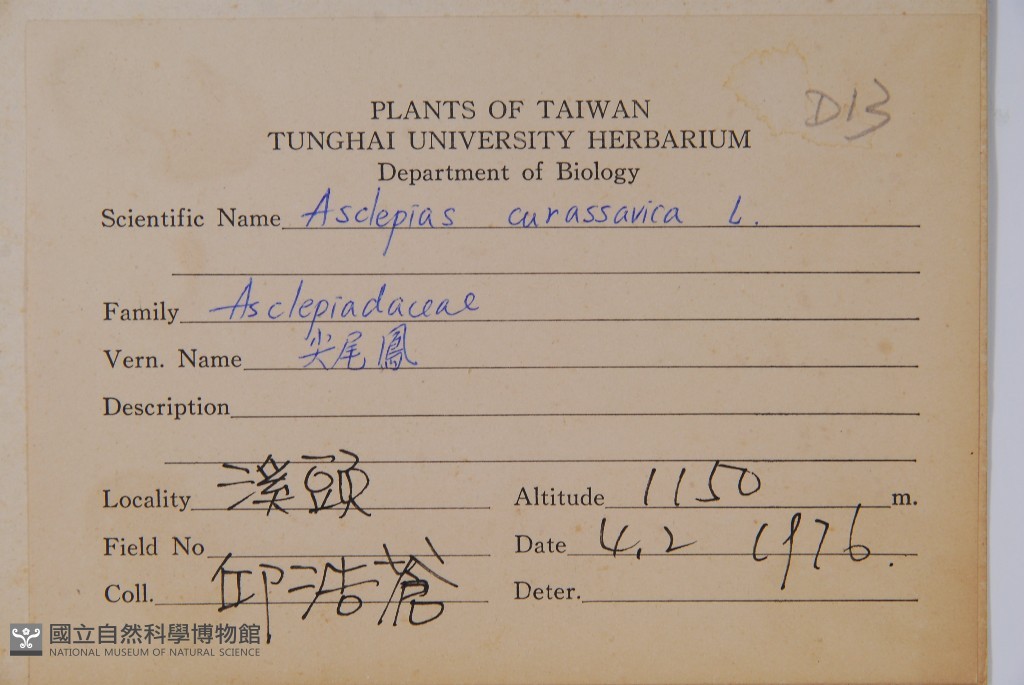 D13
PLANTS OF TAIWAN
TUNGHAI UNIVERSITY HERBARIUM
Department of Biology
Scientific Name Asclepias curassavica L.
Family Asclepiadaceae
Vern. Name 尖尾鳳
Description
Locality 溪頭 Altitude 1150 m.
Field No Date 4.2 1976.
Coll. 邱浩蒼 Deter.
國立自然科學博物館
NATIONAL MUSEUM OF NATURAL SCIENCE